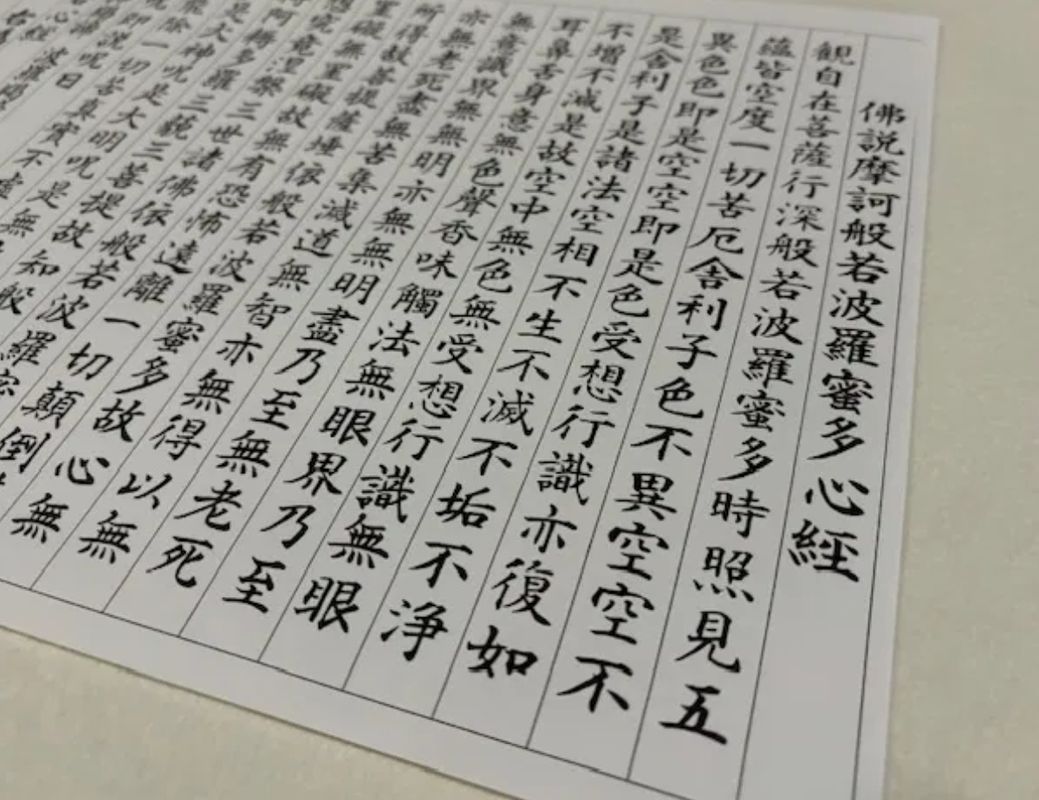 佛説摩訶般若波羅蜜多心經
観自在菩薩行深般若波羅蜜多時照見五
蘊皆空度一切苦厄舎利子色不異空空不
異色色即是空空即是色受想行識亦復如
是舎利子是諸法空相不生不滅不垢不浄
不増不減是故空中無色無受想行識無眼
耳鼻舌身意無色聲香味觸法無眼界乃至
無意識界無無明亦無無明盡乃至無老死
亦無老死盡無苦集滅道無智亦無得以無
所得故菩提薩埵依般若波羅蜜多故心無
罣礙無罣礙故無有恐怖遠離一切顛倒
想究竟涅槃三世諸佛依般若波羅
阿耨多羅三藐三菩提故知般
是大神呪是大明呪是無
除一切苦真實不虚
説呪曰